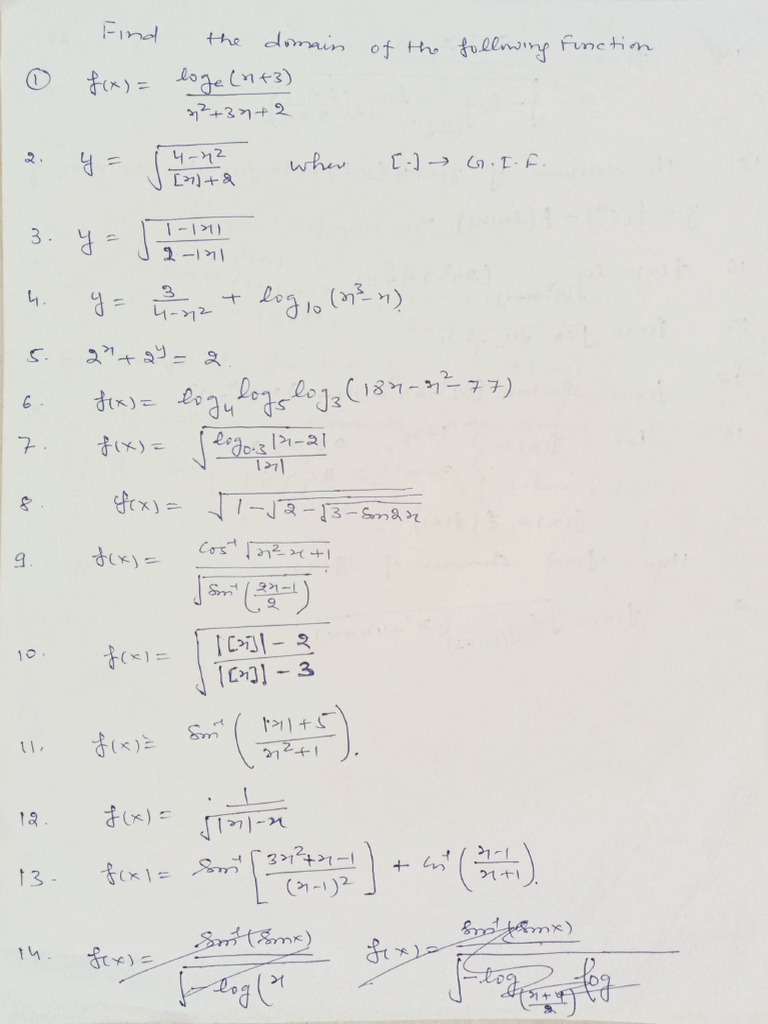 Find the domain of the following Function
① f(x) = logₑ(x+3) / x²+3x+2
2. y = √(4-x² / [x]+2) where [.] → G.I.F.
3. y = √(1-|x| / 2-|x|)
4. y = 3 / 4-x² + log₁₀(x³-x).
5. 2ˣ + 2ʸ = 2
6. f(x) = log₄ log₅ log₃(18x-x²-77)
7. f(x) = √(log₀.₃|x-2| / |x|)
8. f(x) = √(1-√(2-√(3-sin2x)))
9. f(x) = cos⁻¹√(x² x+1) / √(sin⁻¹(2x-1 / 2))
10. f(x) = √(|[x]|-2 / |[x]|-3)
11. f(x) = sin⁻¹(|x|+5 / x²+1).
12. f(x) = 1 / √(|x|-x)
13- f(x) = sin⁻¹[3x²+x-1 / (x-1)²] + cos⁻¹(x-1 / x+1).
14. f(x) = sin⁻¹(sinx) / √(-log(x f(x) = sin⁻¹(sinx) / √(-log₍ₓ₊₄ / ₂₎ log